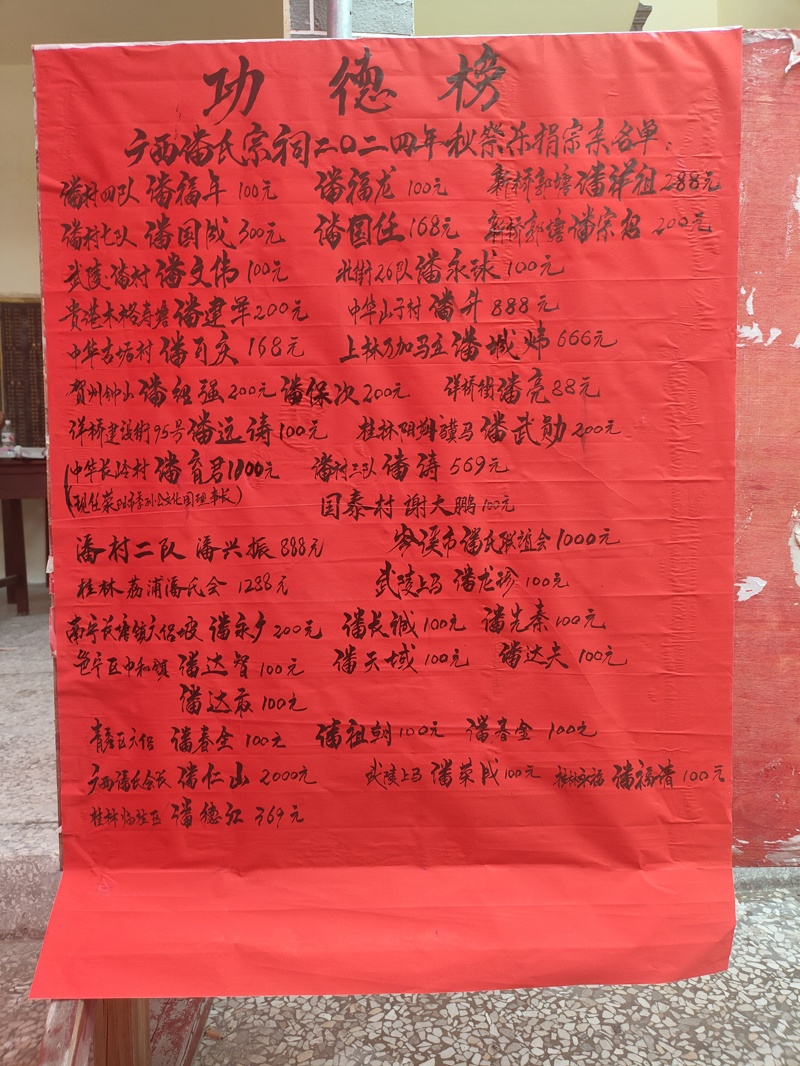 功德榜
广西潘氏宗祠二〇二四年秋祭乐捐宗亲名单:
潘村四队 潘福年 100元 潘福龙 100元 新桥郭塘 潘祥祖 288元
潘村七队 潘国成 300元 潘国任 168元 新桥郭塘 潘宗 200元
武陵·潘村 潘文伟 100元 北街26队 潘永球 100元
贵港木格寿塘 潘建军 200元 中华山子村 潘升 888元
中华 村 潘可庆 168元 上林万加马立 潘城炜 666元
贺州钟山 潘绍强 200元 潘保次 200元 洋桥街 潘亮 88元
洋桥建设街95号 潘远涛 100元 桂林阳朔骥马 潘武勋 200元
(中华长冷村 潘育君 1000元 潘村三队 潘涛 569元
(现任荣 文化园理事长) 国泰村 谢大鹏 100元
潘村二队 潘兴振 888元 岑溪市潘氏联谊会 1000元
桂林荔浦潘氏会 1288元 武陵上马 潘龙珍 100元
南宁长塘镇大侣坡 潘永 200元 潘长诚 100元 潘先秦 100元
邕宁区中和镇 潘达智 100元 潘天域 100元 潘达夫 100元
潘达 100元
青秀区六侣 潘春全 100元 潘祖朝 100元 潘春金 100元
广西潘氏会长 潘仁山 2000元 武陵上马 潘荣成 100元 桂林永福 潘福清 100元
桂林临桂区 潘德红 369元